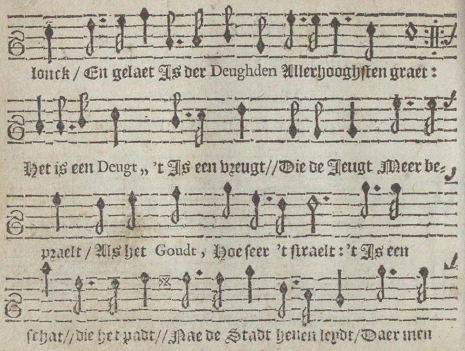 lonck / En gelaet Is der Deughden Allerhooghsten graet :
Het is een Deugt „ 't Is een vreugt//Die de Jeugt Meer be-
praelt / Als het Goudt , Hoe seer 't straelt : 't Is een
schat//die het padt//Nae de Stadt henen leydt/Daer men